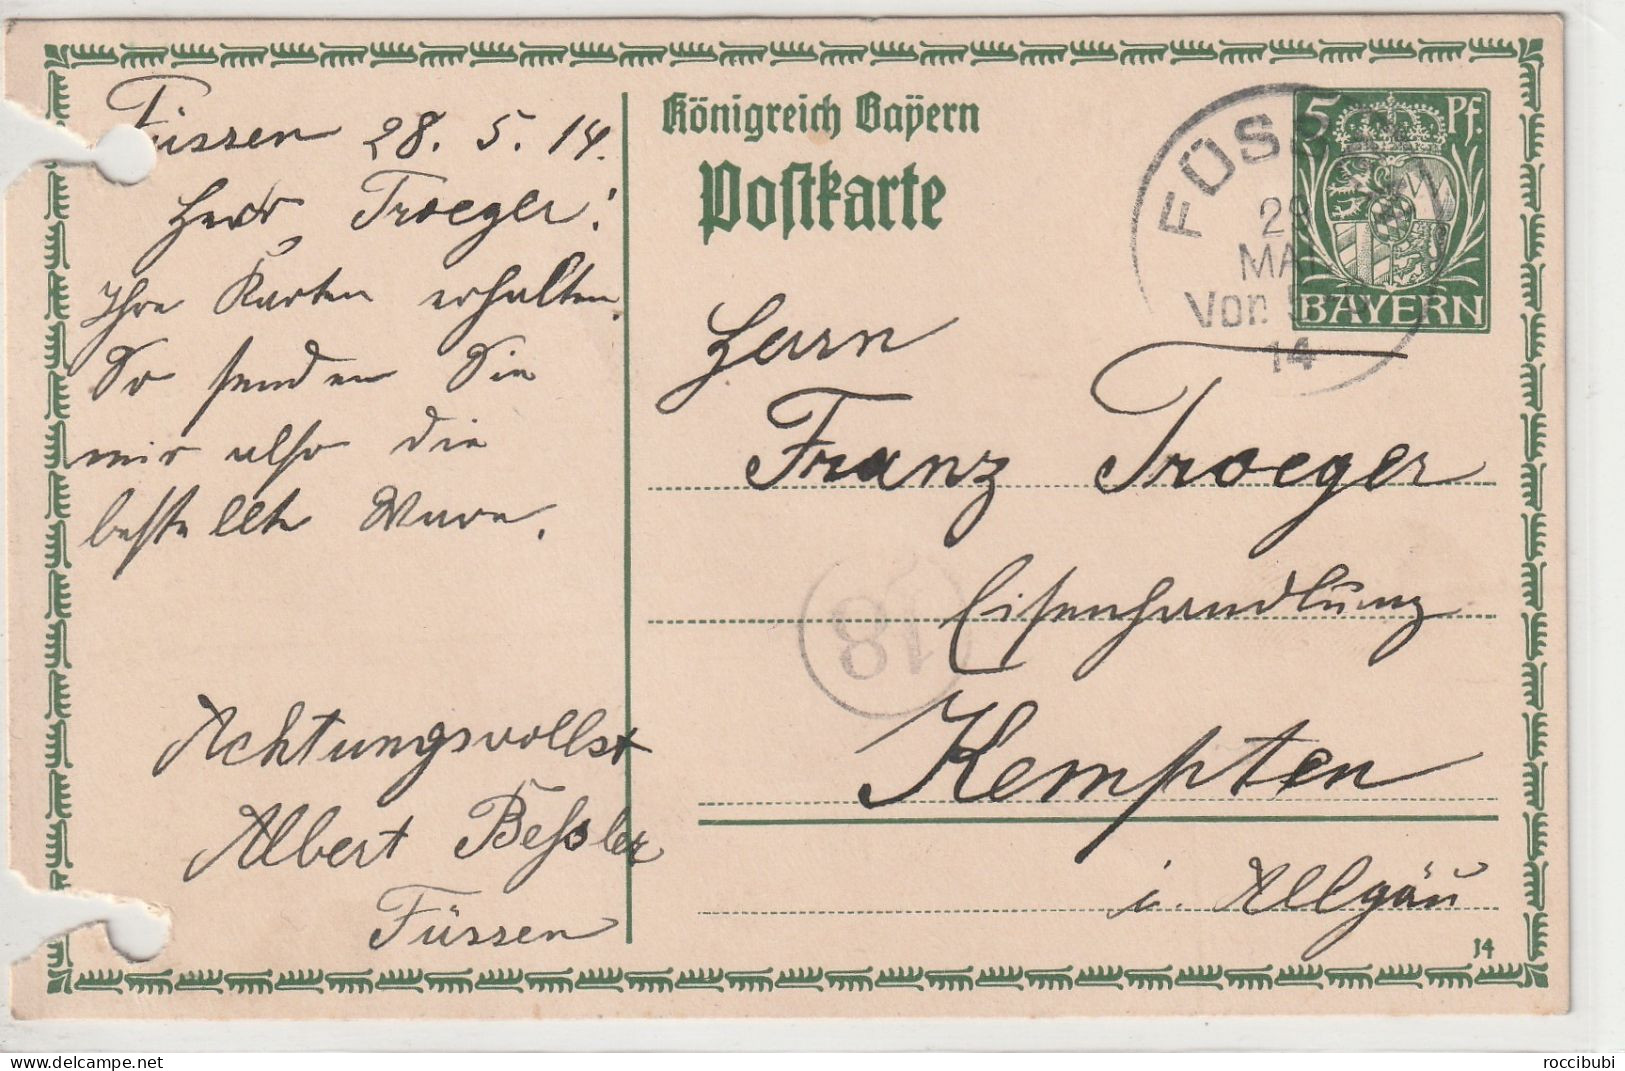 Füssen 28. 5. 14.
Herr Troeger!
Ihre Karten erhalten.
So senden Sie
mir also die
bestellte Ware.
Achtungsvollst
Albert Bessler
Füssen
Königreich Bayern
Postkarte
5 Pf.
BAYERN
FÜSSEN
29
MAI
Vor.
14
Herrn
Franz Troeger
Eisenhandlung
Kempten
i. Allgäu
18
14
delcampe.net
roccibubi